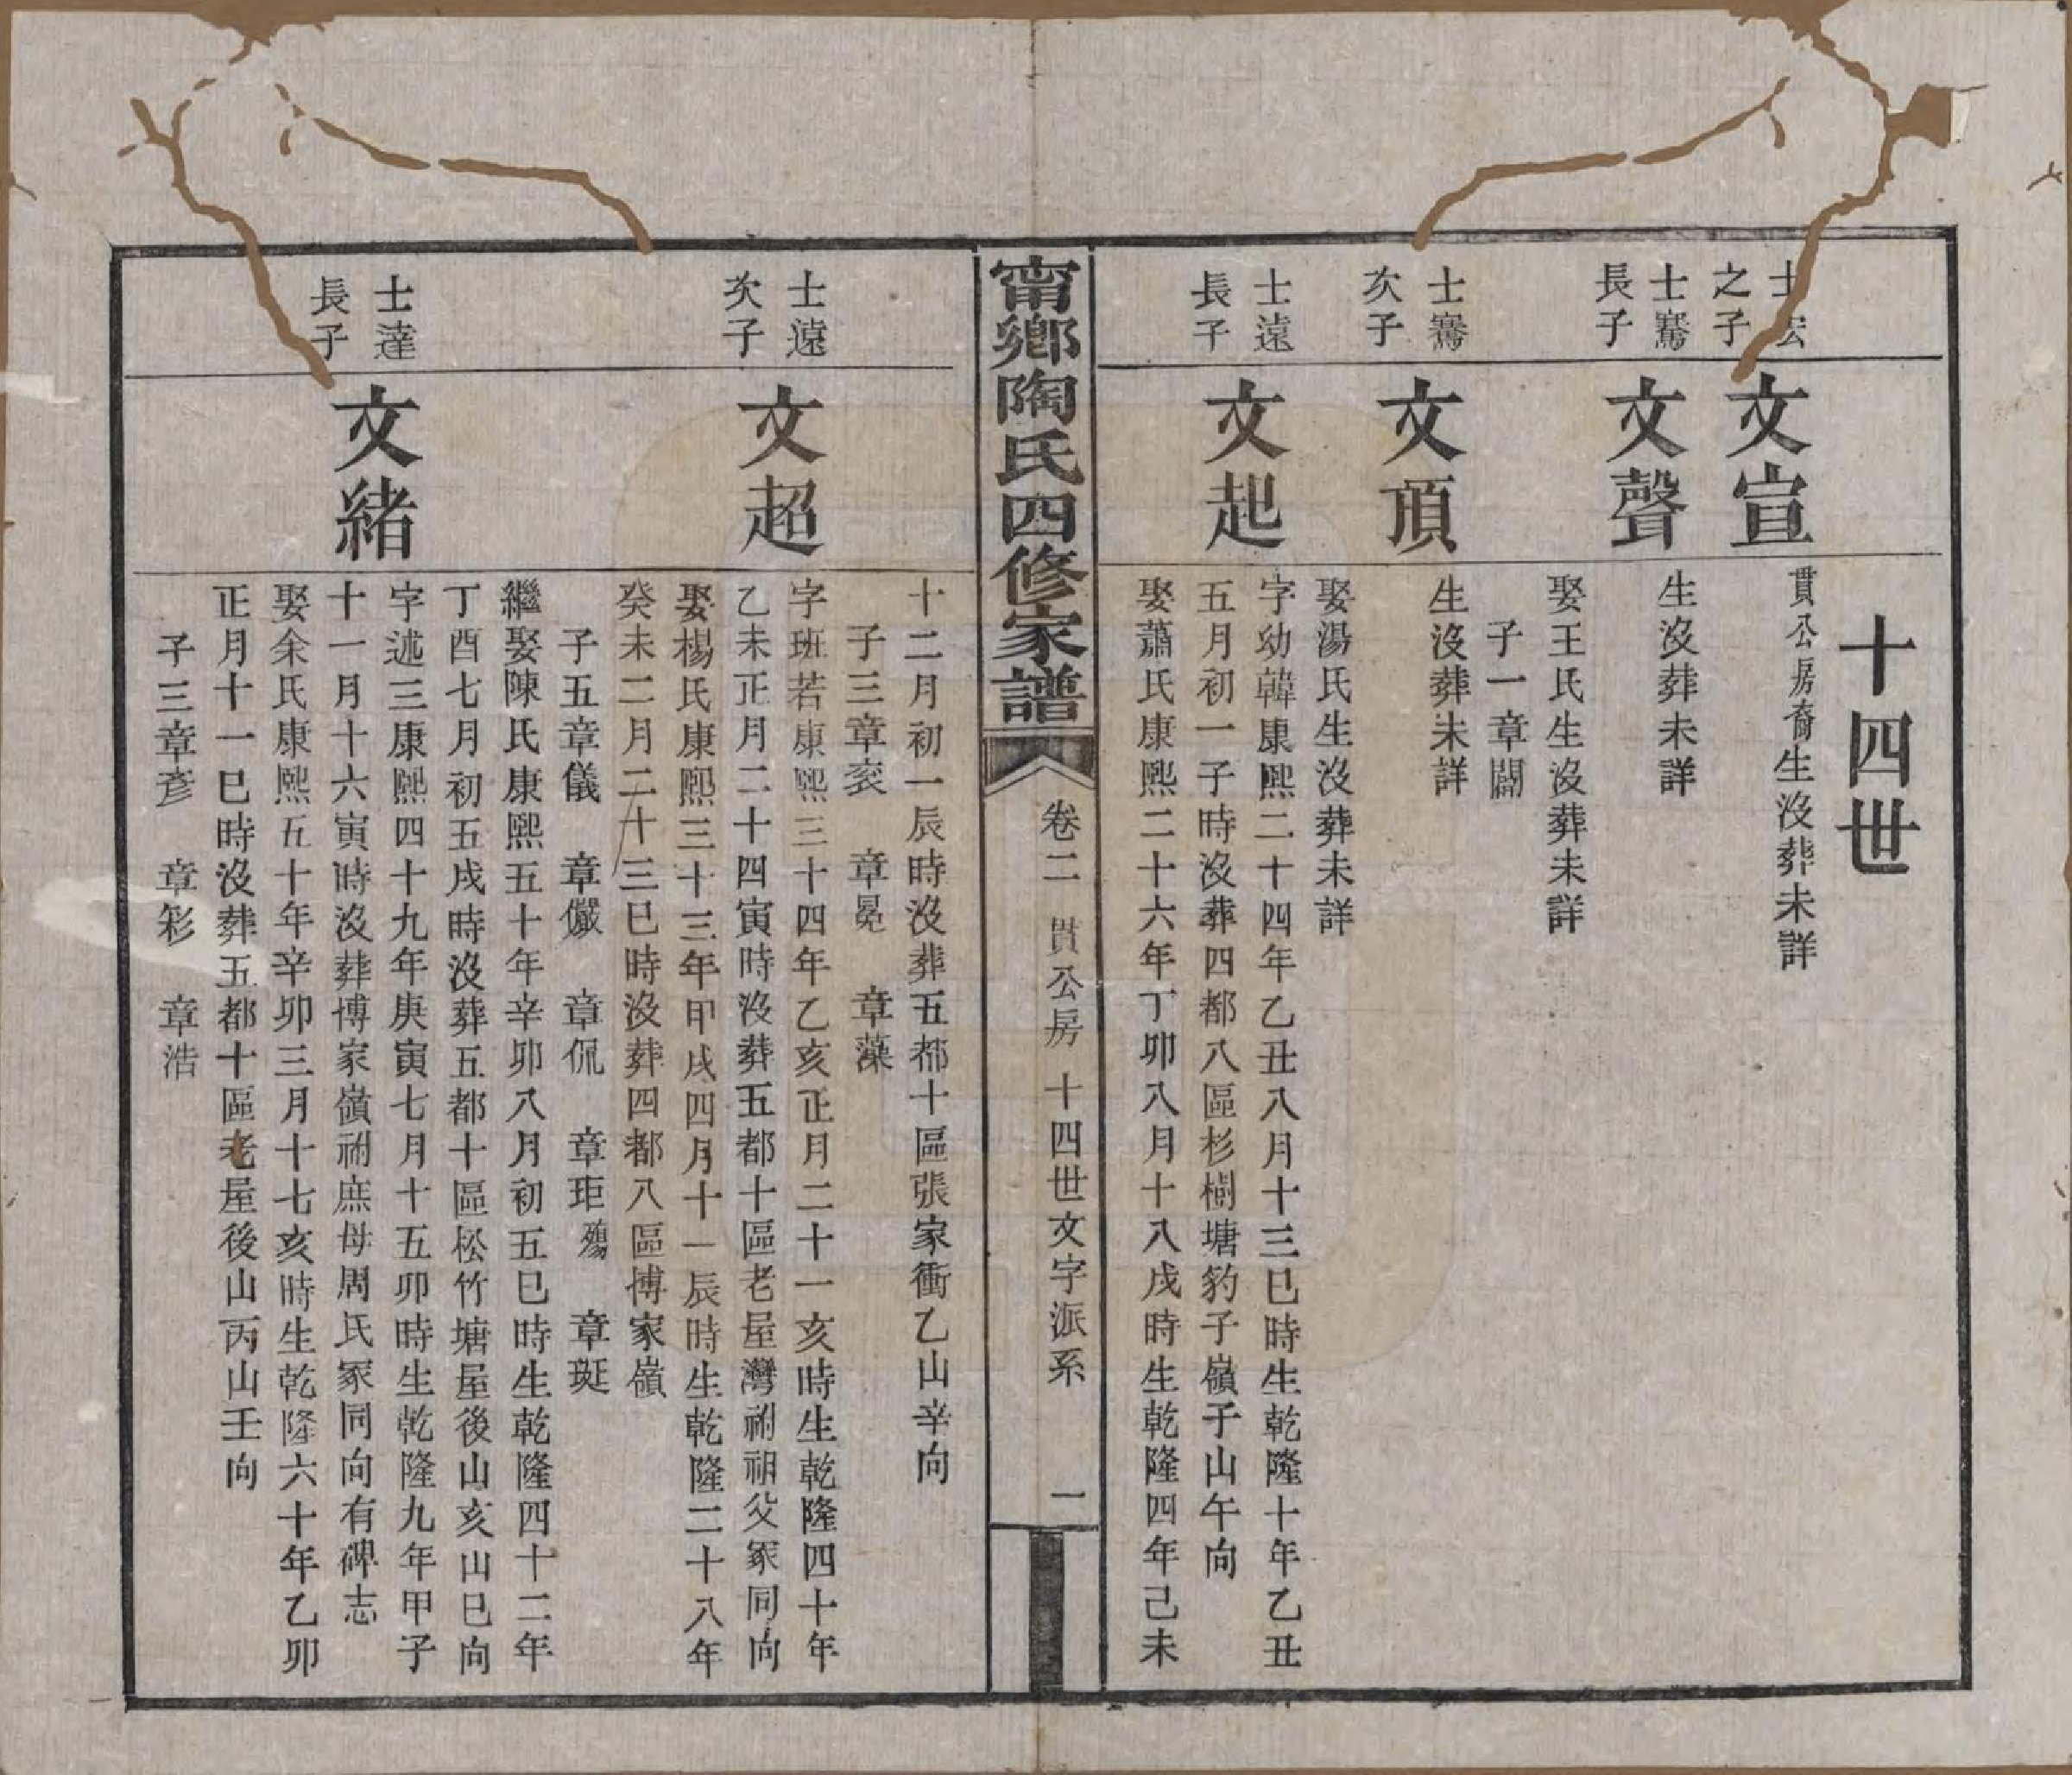 十四世
士宏
之子
文宣
貫公房裔生沒葬未詳
士騫
長子
文聲
生沒葬未詳
娶王氏生沒葬未詳
子一章闢
士騫
次子
文頂
生沒葬未詳
娶湯氏生沒葬未詳
士遠
長子
文起
字幼韓康熙二十四年乙丑八月十三巳時生乾隆十年乙丑
五月初一子時沒葬四都八區杉樹塘豹子嶺子山午向
娶蕭氏康熙二十六年丁卯八月十八戌時生乾隆四年己未
甯鄉陶氏四修家譜
卷二 貫公房 十四世文字派系 一
十二月初一辰時沒葬五都十區張家衝乙山辛向
子三章衮 章冕 章藻
士遠
次子
文超
字班若康熙三十四年乙亥正月二十一亥時生乾隆四十年
乙未正月二十四寅時沒葬五都十區老屋灣祔祖父冢同向
娶楊氏康熙三十三年甲戌四月十一辰時生乾隆二十八年
癸未二月二十三巳時沒葬四都八區摶家嶺
子五章儀 章儼 章侃 章玨殤 章珽
繼娶陳氏康熙五十年辛卯八月初五巳時生乾隆四十二年
丁酉七月初五戌時沒葬五都十區松竹塘屋後山亥山巳向
士達
長子
文緒
字述三康熙四十九年庚寅七月十五卯時生乾隆九年甲子
十一月十六寅時沒葬博家嶺祔庶母周氏冢同向有碑志
娶余氏康熙五十年辛卯三月十七亥時生乾隆六十年乙卯
正月十一巳時沒葬五都十區老屋後山丙山壬向
子三章彥 章彩 章浩